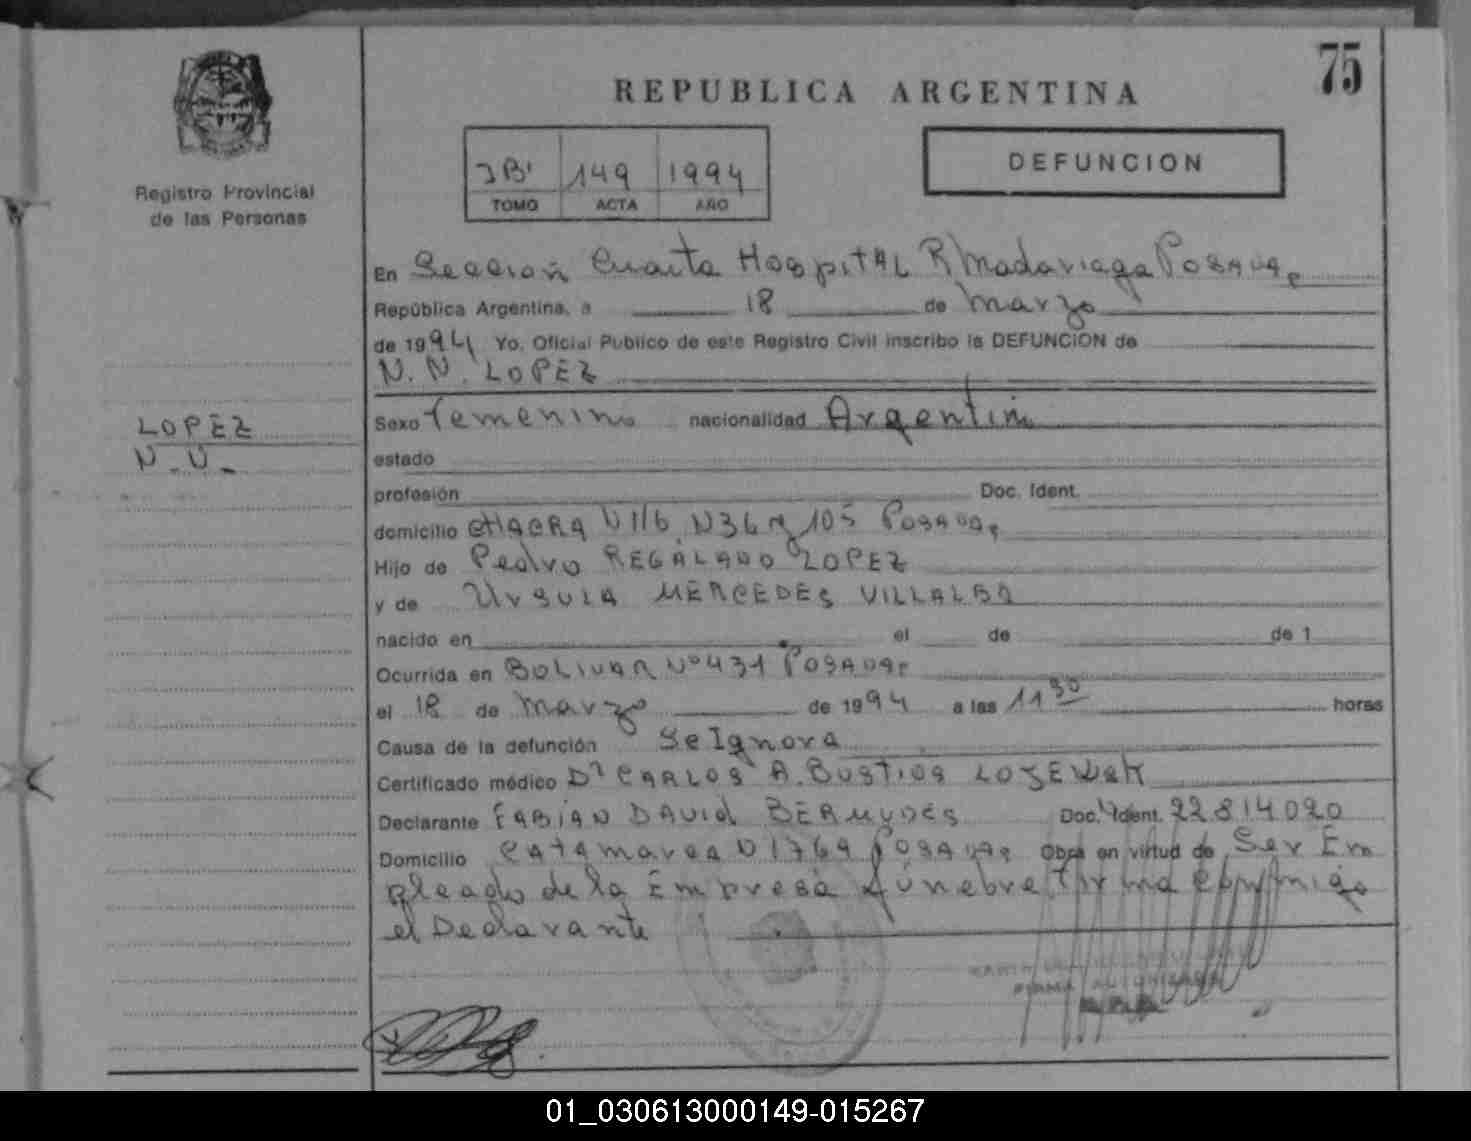 75
REPUBLICA ARGENTINA
DEFUNCION
Registro Provincial
de las Personas
3B' 149 1994
TOMO ACTA AÑO
En Seccion Cuarta Hospital R Madariaga Posadas
República Argentina, a 18 de Marzo
de 1994 Yo, Oficial Publico de este Registro Civil inscribo la DEFUNCION de
N.N. LOPEZ
LOPEZ
N.N.
Sexo Femenino nacionalidad Argentin
estado
profesión Doc. Ident.
domicilio CHACRA 116 N36 y 105 Posadas
Hijo de Pedro REGALADO LOPEZ
y de URSULA MERCEDES VILLALBA
nacido en el de de 1
Ocurrida en BOLIVAR Nº 431 Posadas
el 18 de Marzo de 1994 a las 11 30 horas
Causa de la defunción Se Ignora
Certificado médico Dr CARLOS A. Bustios
Declarante FABIAN DAVID BERMUDES Doc. Ident. 22814020
Domicilio Catamarca N 1769 Posadas Obra en virtud de Ser Em
pleado de la Empresa fúnebre firma conmigo
el Declarante
01_030613000149-015267